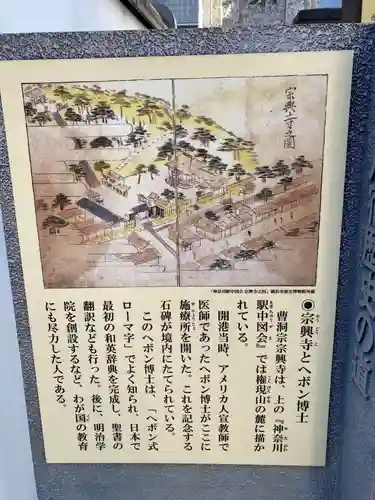 宗興寺之図
『神奈川駅中図会 宗興寺之図』横浜市歴史博物館所蔵
◉宗興寺とヘボン博士
曹洞宗宗興寺は、上の『神奈川
駅中図会』では権現山の麓に描か
れている。
開港当時、アメリカ人宣教師で
医師であったヘボン博士がここに
施療所を開いた。これを記念する
石碑が境内にたてられている。
このヘボン博士は、「ヘボン式
ローマ字」でよく知られ、日本で
最初の和英辞典を完成し、聖書の
翻訳なども行った。後に、明治学
院を創設するなど、わが国の教育
にも尽力した人である。